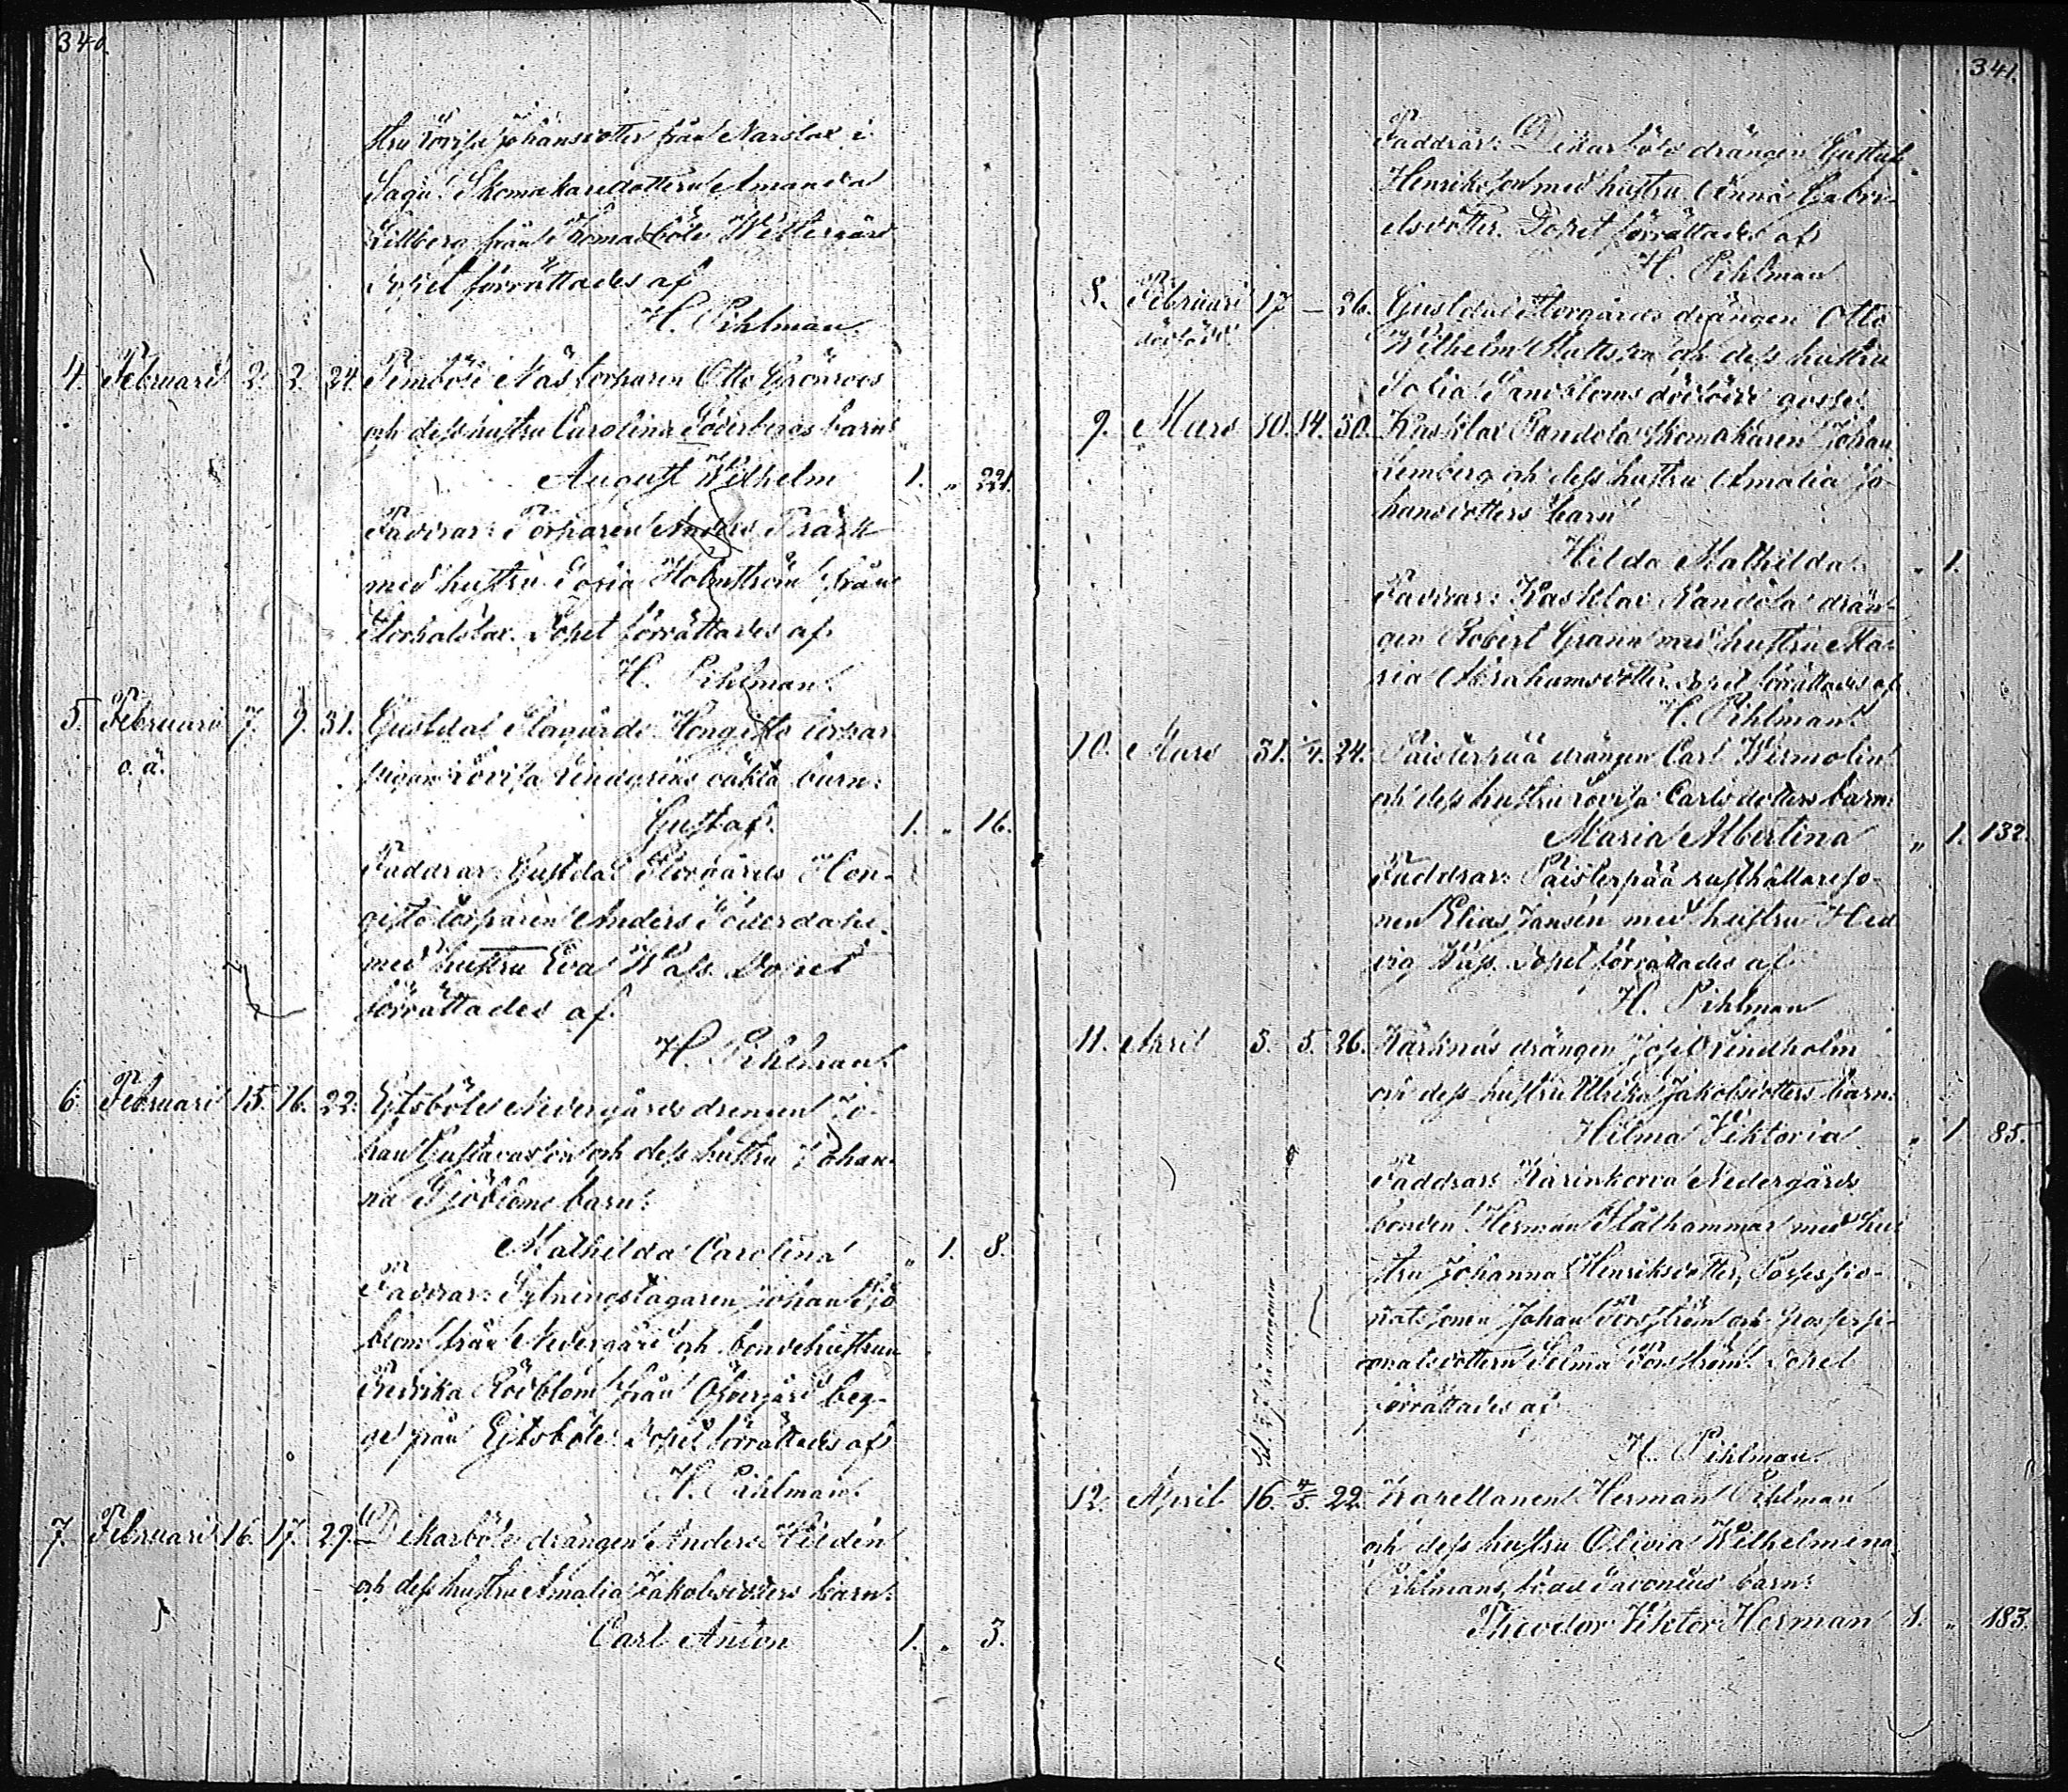 340.
stru Lovisa Johansdotter från Narslax i
Sagu. Skomakaredottern Amanda
Lillberg från Tomasböle Westergård
Dopet förrättades af
H. Pihlman.
4. Februari 2. 2. 24. Pemböle Näs torparen Otto Grönroos
och dess hustru Carolina Söderbergs barn:
August Wilhelm 1. " 221.
Faddrar: Torparen Anders Stark
med hustru Sofia Holmström från
Storhalslax. Dopet förrättades af
H. Pihlman.
5. Februari 7. 9. 31. Gustdal Storgårds Hongisto torpar
o. ä. pigan Lovisa Lindgrens oäkta barn:
Gustaf. 1. " 16.
Faddrar: Gustdal Storgårds Hon-
gisto torparen Anders Söderdahl
med hustru Eva Wass. Dopet
förrättades af
H. Pihlman.
6. Februari 15. 16. 22. Ejtsböle Nedergårds drengen Jo-
han Gustavsson och dess hustru Johan-
na Sjöbloms barn:
Mathilda Carolina " 1. 8.
Faddrar: Sytningstagaren Johan Sjö
blom från Nedergård och bondehustrun
Fredrika Rödblom från Öfvergård beg-
ge från Ejtsböle. Dopet förrättades af
H. Pihlman.
7. Februari 16. 17. 29. Dikarböle drängen Anders Hildén
och dess hustru Amalia Jakobsdotters barn:
Carl Anton 1. " 3.
341.
Faddrar: Dikarböle drängen Gustaf
Henriksson med hustru Anna Gabri-
elsdotter. Dopet förrättades af
H. Pihlman
8. Februari 17 — 26. Gustdal Storgårds drängen Otto
dödfödd Wilhelm Mattsson och dess hustru
Sofia Sandbloms dödfödde gosse.
9. Mars 10. 14. 30. Kasklax Randola skomakaren Johan
Lemberg och dess hustru Amalia Jo-
hansdotters barn
Hilda Mathilda. " 1.
Faddrar: Kasklax Randola drän-
gen Robert Grann med hustru Ma-
ria Abrahamsdotter. Dopet förrättades af
H. Pihlman.
10. Mars 31. 1/4. 24. Paisterpää drängen Carl Wermolin
och dess hustru Lovisa Carlsdotters barn:
Maria Albertina " 1. 132.
Faddrar: Paisterpää rusthållareso-
nen Elias Jansén med hustru Hed
vig Wass. Dopet förrättades af
H. Pihlman
11. April 3. 5. 26. Kärknäs drängen Josef Lindholm
och dess hustru Ulrika Jakobsdotters barn:
Hilma Viktoria " 1. 85.
Faddrar: Karinkorva Nedergårds
bonden Herman Stålhammar med hu
stru Johanna Henriksdotter, Possessio-
natssonen Johan Forsström och possessi-
onatsdottern Selma Forsström. Dopet
förrättades af
H. Pihlman.
12. April 16. 4/5. 22. Kapellanen Herman Pihlman
och dess hustru Olivia Wilhelmina
Pihlmans, född Savonius barn:
Theodor Viktor Herman 1. " 183.